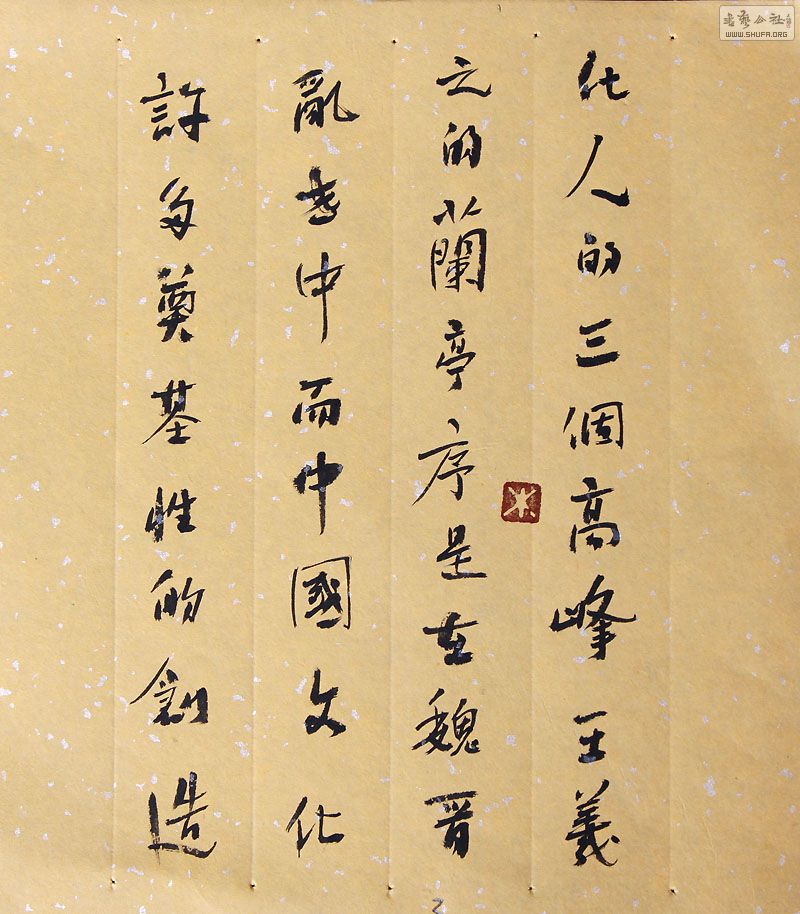 化人的三個高峰王羲
之的蘭亭序是在魏晉
亂世中而中國文化
許多奠基性的創造
米
2
書藝公社
WWW.SHUFA.ORG